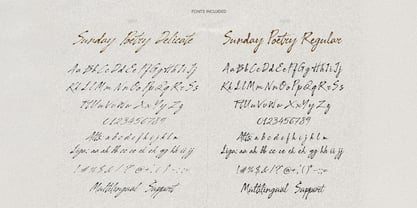 FONTS INCLUDED
Sunday Poetry Delicate
Aa Bb Cc Dd Ee Ff Gg Hh Ii Jj
Kk Ll Mm Nn Oo Pp Qq Rr Ss
Tt Uu Vv Ww Xx Yy Zz
0123456789
Alts: a b c d e f h i j k l m
Liga: aa cc ee eh gg hh ii jj
Multilingual Support
Sunday Poetry Regular
Aa Bb Cc Dd Ee Ff Gg Hh Ii Jj
Kk Ll Mm Nn Oo Pp Qq Rr Ss
Tt Uu Vv Ww Xx Yy Zz
0123456789
Alts: a b c d e f h i j k l m
Multilingual Support